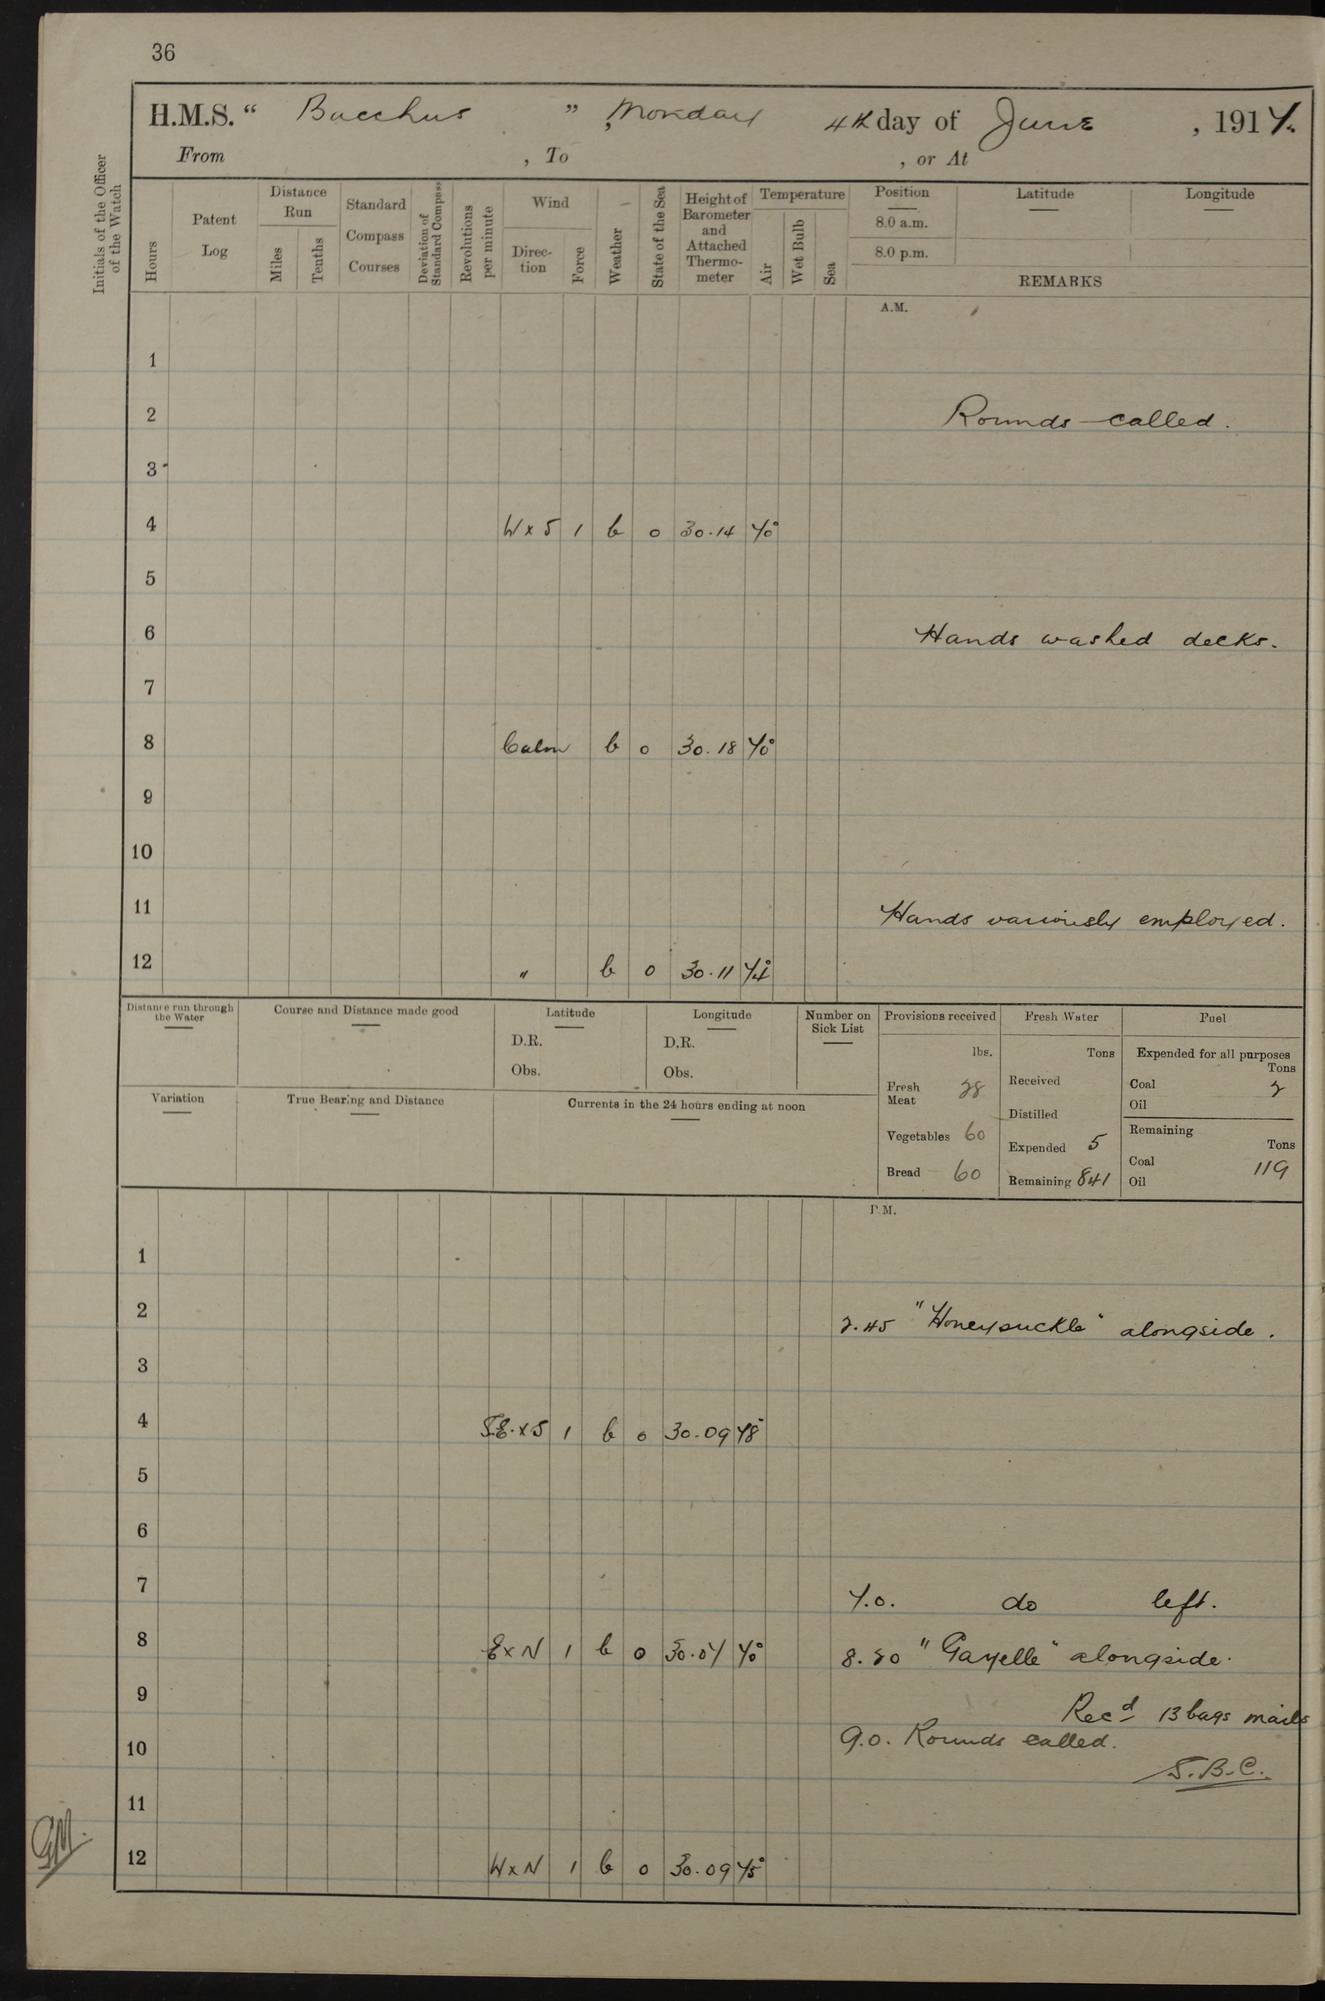 36
H.M.S. “ Bacchus ” , Monday 4th day of June , 1917.
From , To , or At
Initials of the Officer of the Watch
Hours
Patent Log
Distance Run
Miles
Tenths
Standard Compass Courses
Deviation of Standard Compass
Revolutions per minute
Wind
Direction
Force
Weather
State of the Sea
Height of Barometer and Attached Thermometer
Temperature
Air
Wet Bulb
Sea
Position Latitude Longitude
8.0 a.m.
8.0 p.m.
REMARKS
A.M.
1
2 Rounds called.
3
4 W x S 1 b o 30.14 70°
5
6 Hands washed decks.
7
8 Calm b o 30.18 70°
9
10
11 Hands variously employed.
12 " b o 30.11 74°
Distance run through the Water
Course and Distance made good
Latitude
D.R.
Obs.
Longitude
D.R.
Obs.
Number on Sick List
Provisions received
lbs.
Fresh Meat 28
Vegetables 60
Bread 60
Fresh Water
Tons
Received
Distilled
Expended 5
Remaining 841
Fuel
Expended for all purposes
Tons
Coal 2
Oil
Remaining
Tons
Coal 119
Oil
Variation
True Bearing and Distance
Currents in the 24 hours ending at noon
P.M.
1
2 2.45 "Honeysuckle" alongside.
3
4 S.E. x S 1 b o 30.09 78°
5
6
7 7.0. do left.
8 E x N 1 b o 30.07 70° 8.50 "Gazelle" alongside.
9 Recd 13 bags mails
10 9.0. Rounds called.
S.B.C.
11
GM.
12 W x N 1 b o 30.09 75°